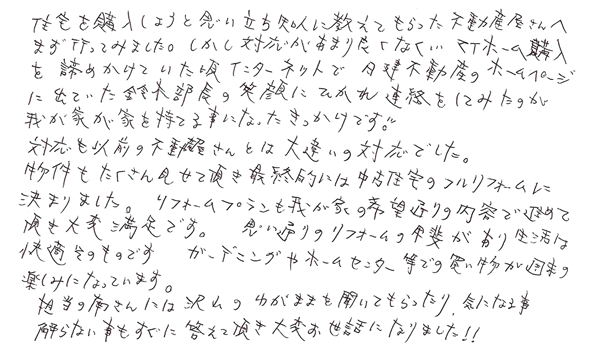 住宅を購入しようと思い立ち知人に教えてもらった不動産屋さんへ
まず行ってみました。しかし対応があまり良くなくマイホーム購入
を諦めかけていた頃インターネットで日建不動産のホームページ
に出ていた鈴木部長の笑顔にひかれ連絡をしてみたのが
我が家が家を持てる事になったきっかけです。"
対応も以前の不動産屋さんとは大違いの対応でした。
物件もたくさん見せて頂き最終的には中古住宅のフルリフォームに
決まりました。リフォームプランも我が家の希望通りの内容で進めて
頂き大変満足です。 思い通りのリフォームの甲斐があり生活は
快適そのものです ガーデニングやホームセンター等での買い物が週末の
楽しみになっています。
担当の南さんには沢山のわがままを聞いてもらったり、気になる事
解らない事もすぐに答えて頂き大変お世話になりました!!